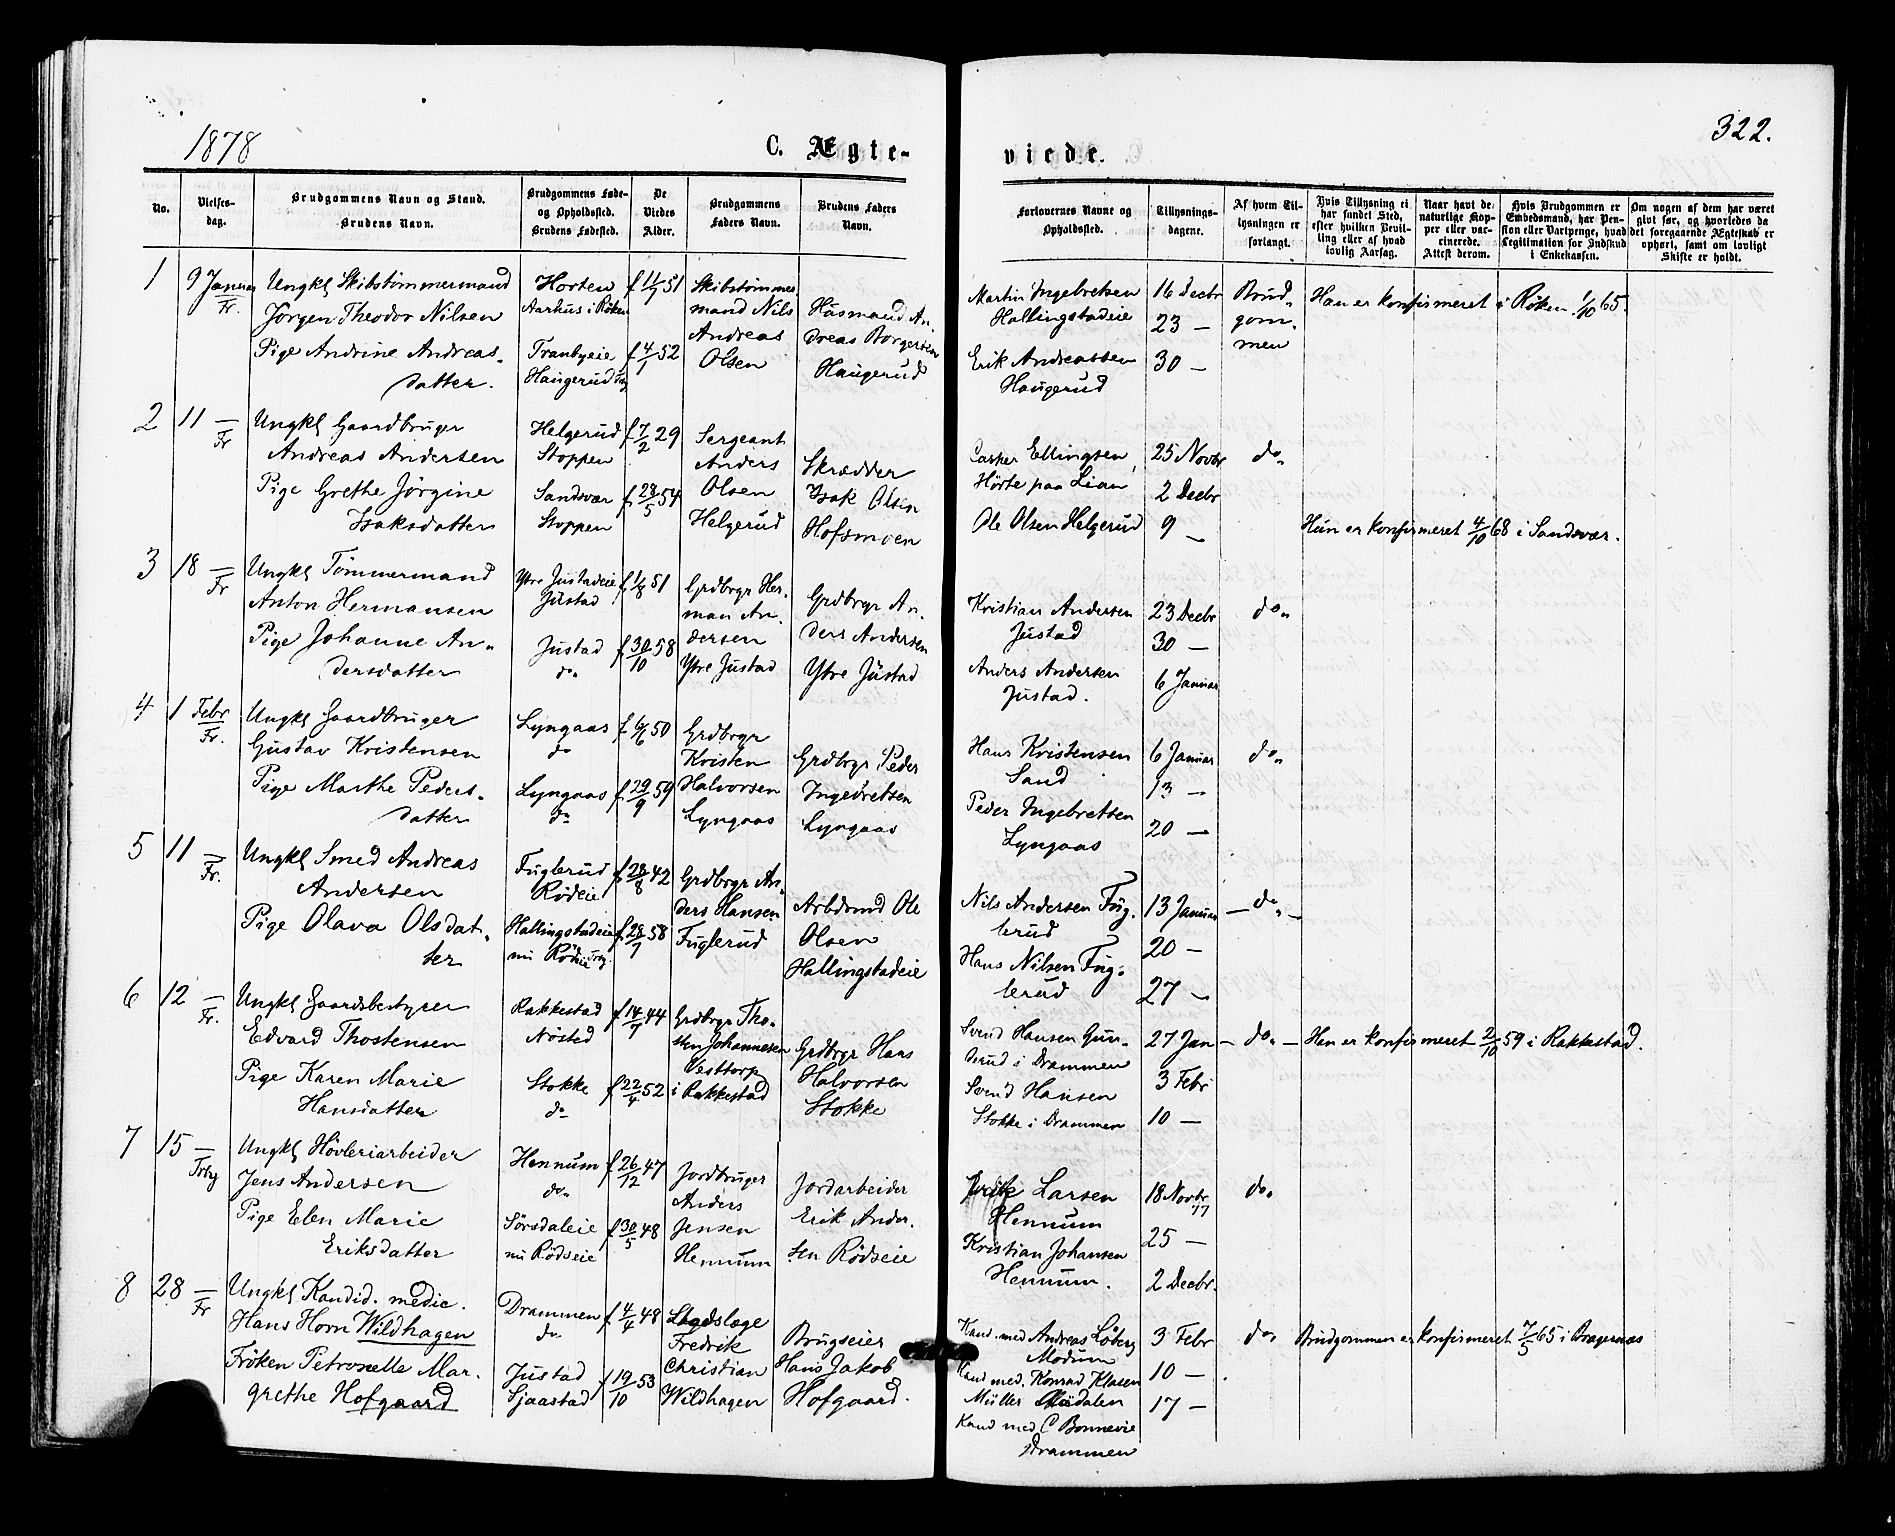 1878
C. Ægte-
No.
Vielses-
dag.
Brudgommens Navn og Stand.
Brudens Navn.
Brudgommens Føde-
og Opholdssted.
Brudens Fødested.
De
Viedes
Alder.
Brudgommens
Faders Navn.
Brudens Faders
Navn.
1
9 Januar
Fr.
Ungkl Skibstømmermand
Jörgen Theodor Nilsen
Pige Andrine Andreas-
datter.
Horten
Aarhus i Röken
Tranbyeie
Haugerud
f 11/7 51
f 4/1 52
Skibstømmer
mand Nils
Andreas
Olsen
Husmand An
dreas Borgersen
Haugerud
2
11 —
Fr
Ungkl Gaardbruger
Andreas Andersen
Pige Grethe Jörgine
Isaksdatter
Helgerud
Stoppen
Sandsvær
Stoppen
f 7/2 29
f 28/5 54
Sergeant
Anders
Olsen
Helgerud
Skrædder
Isak Olsen
Hofsmoen
3
18 —
Fr
Ungkl Tømmermand
Anton Hermansen
Pige Johanne An-
dersdatter
Ytre Justadeie
Justad
Justad
do
f 1/8 51
f 30/10 58
Grdbrgr Her-
man An-
dersen
Ytre Justad
Grdbrgr An-
ders Andersen
Ytre Justad
4
1 Febr
Fr.
Ungkl Gaardbruger
Gustav Kristensen
Pige Marthe Peders-
datter
Lyngaas
do
Lyngaas
do
f 6/6 50
f 29/9 59
Grdbrgr
Kristen
Halvorsen
Lyngaas
Grdbrgr Peder
Ingebretsen
Lyngaas
5
11 —
Fr.
Ungkl Smed Andreas
Andersen
Pige Olava Olsdat-
ter
Fuglerud
Rødeie
Hallingstadeie
nu Rödseie
f 28/8 42
f 28/7 58
Grdbrgr An-
ders Hansen
Fuglerud
Arbdmd Ole
Olsen
Hallingstadeie
6
12 —
Fr.
Ungkl Gaardsbestyrer
Edvard Thostensen
Pige Karen Marie
Hansdatter
Rakkestad
Nösted
Stokke
do
f 14/7 44
f 22/4 52
Grdbrgr Tho-
sten Johannesen
Vesttorp
i Rakkestad
Grdbrgr Hans
Halvorsen
Stokke
7
15 —
Trby
Ungkl Høvleriarbeider
Jens Andersen
Pige Elen Marie
Eriksdatter
Hennum
do
Sörsdaleie
nu Rödseie
f 26/12 47
f 30/5 48
Jordbruger
Anders
Jensen
Hennum
Jordarbeider
Erik Ander-
sen Rödseie
8
28 —
Fr
Ungkl Kandid. medic.
Hans Horn Wildhagen
Fröken Petronelle Mar-
grethe Hofgaard
Drammen
do
Justad
Sjaastad
f 4/4 48
f 19/10 53
Stadslæge
Fredrik
Christian
Wildhagen
Brugseier
Hans Jakob
Hofgaard.
322.
viede.
Forlovernes Navne og
Opholdssted.
Tillysnings-
dagene.
Af hvem Til-
lysningen er
forlangt.
Hvis Tillysning ei
har fundet Sted,
efter hvilken Bevil-
ling eller af hvad
lovlig Aarsag.
Naar havt de
naturlige Kop-
per eller vac-
cinerede.
Attest derom.
Hvis Brudgommen er
Embedsmand, har Pen-
sion eller Vartpenge, hvad
Legitimation for Indskud
i Enkekassen.
Om nogen af dem har været
gift før, og hvorledes da
det foregaaende Ægteskab er
ophørt, samt om lovligt
Skifte er holdt.
Martin Ingebretsen
Hallingstadeie
Erik Andreassen
Haugerud
16 Decbr
23 —
30 —
Brud-
gom-
men
Han er konfirmeret i Röken 1/10 65.
Casper Ellingsen
Hörte paa Lian
Ole Olsen Helgerud
25 Novbr
2 Decbr
9 —
do
Hun er konfirmeret 4/10 68 i Sandsvær.
Kristian Andersen
Justad
Anders Andersen
Justad.
23 Decbr
30 —
6 Januar
do
Hans Kristensen
Sand
Peder Ingebretsen
Lyngaas
6 Januar
13 —
20 —
do
Nils Andersen Fug-
lerud
Hans Nilsen Fug-
lerud
13 Januar
20 —
27 —
— do —
Svend Hansen Gun-
derud i Drammen
Svend Hansen
Stokke i Drammen
27 Jan
3 Febr
10 —
— do —
Han er konfirmeret 2/10 59 i Rakkestad.
Larsen
Hennum
Kristian Johansen
Hennum.
18 Novbr 77
25 —
2 Decbr.
do
Kand. med Andreas Löberg
Modum
Kand med. Konrad Klasen
Müller
Kand med C Bonnevie
Drammen
3 Febr
10 —
17 —
do
Brudgommen er konfirmeret 7/5 65 i Bragernæs